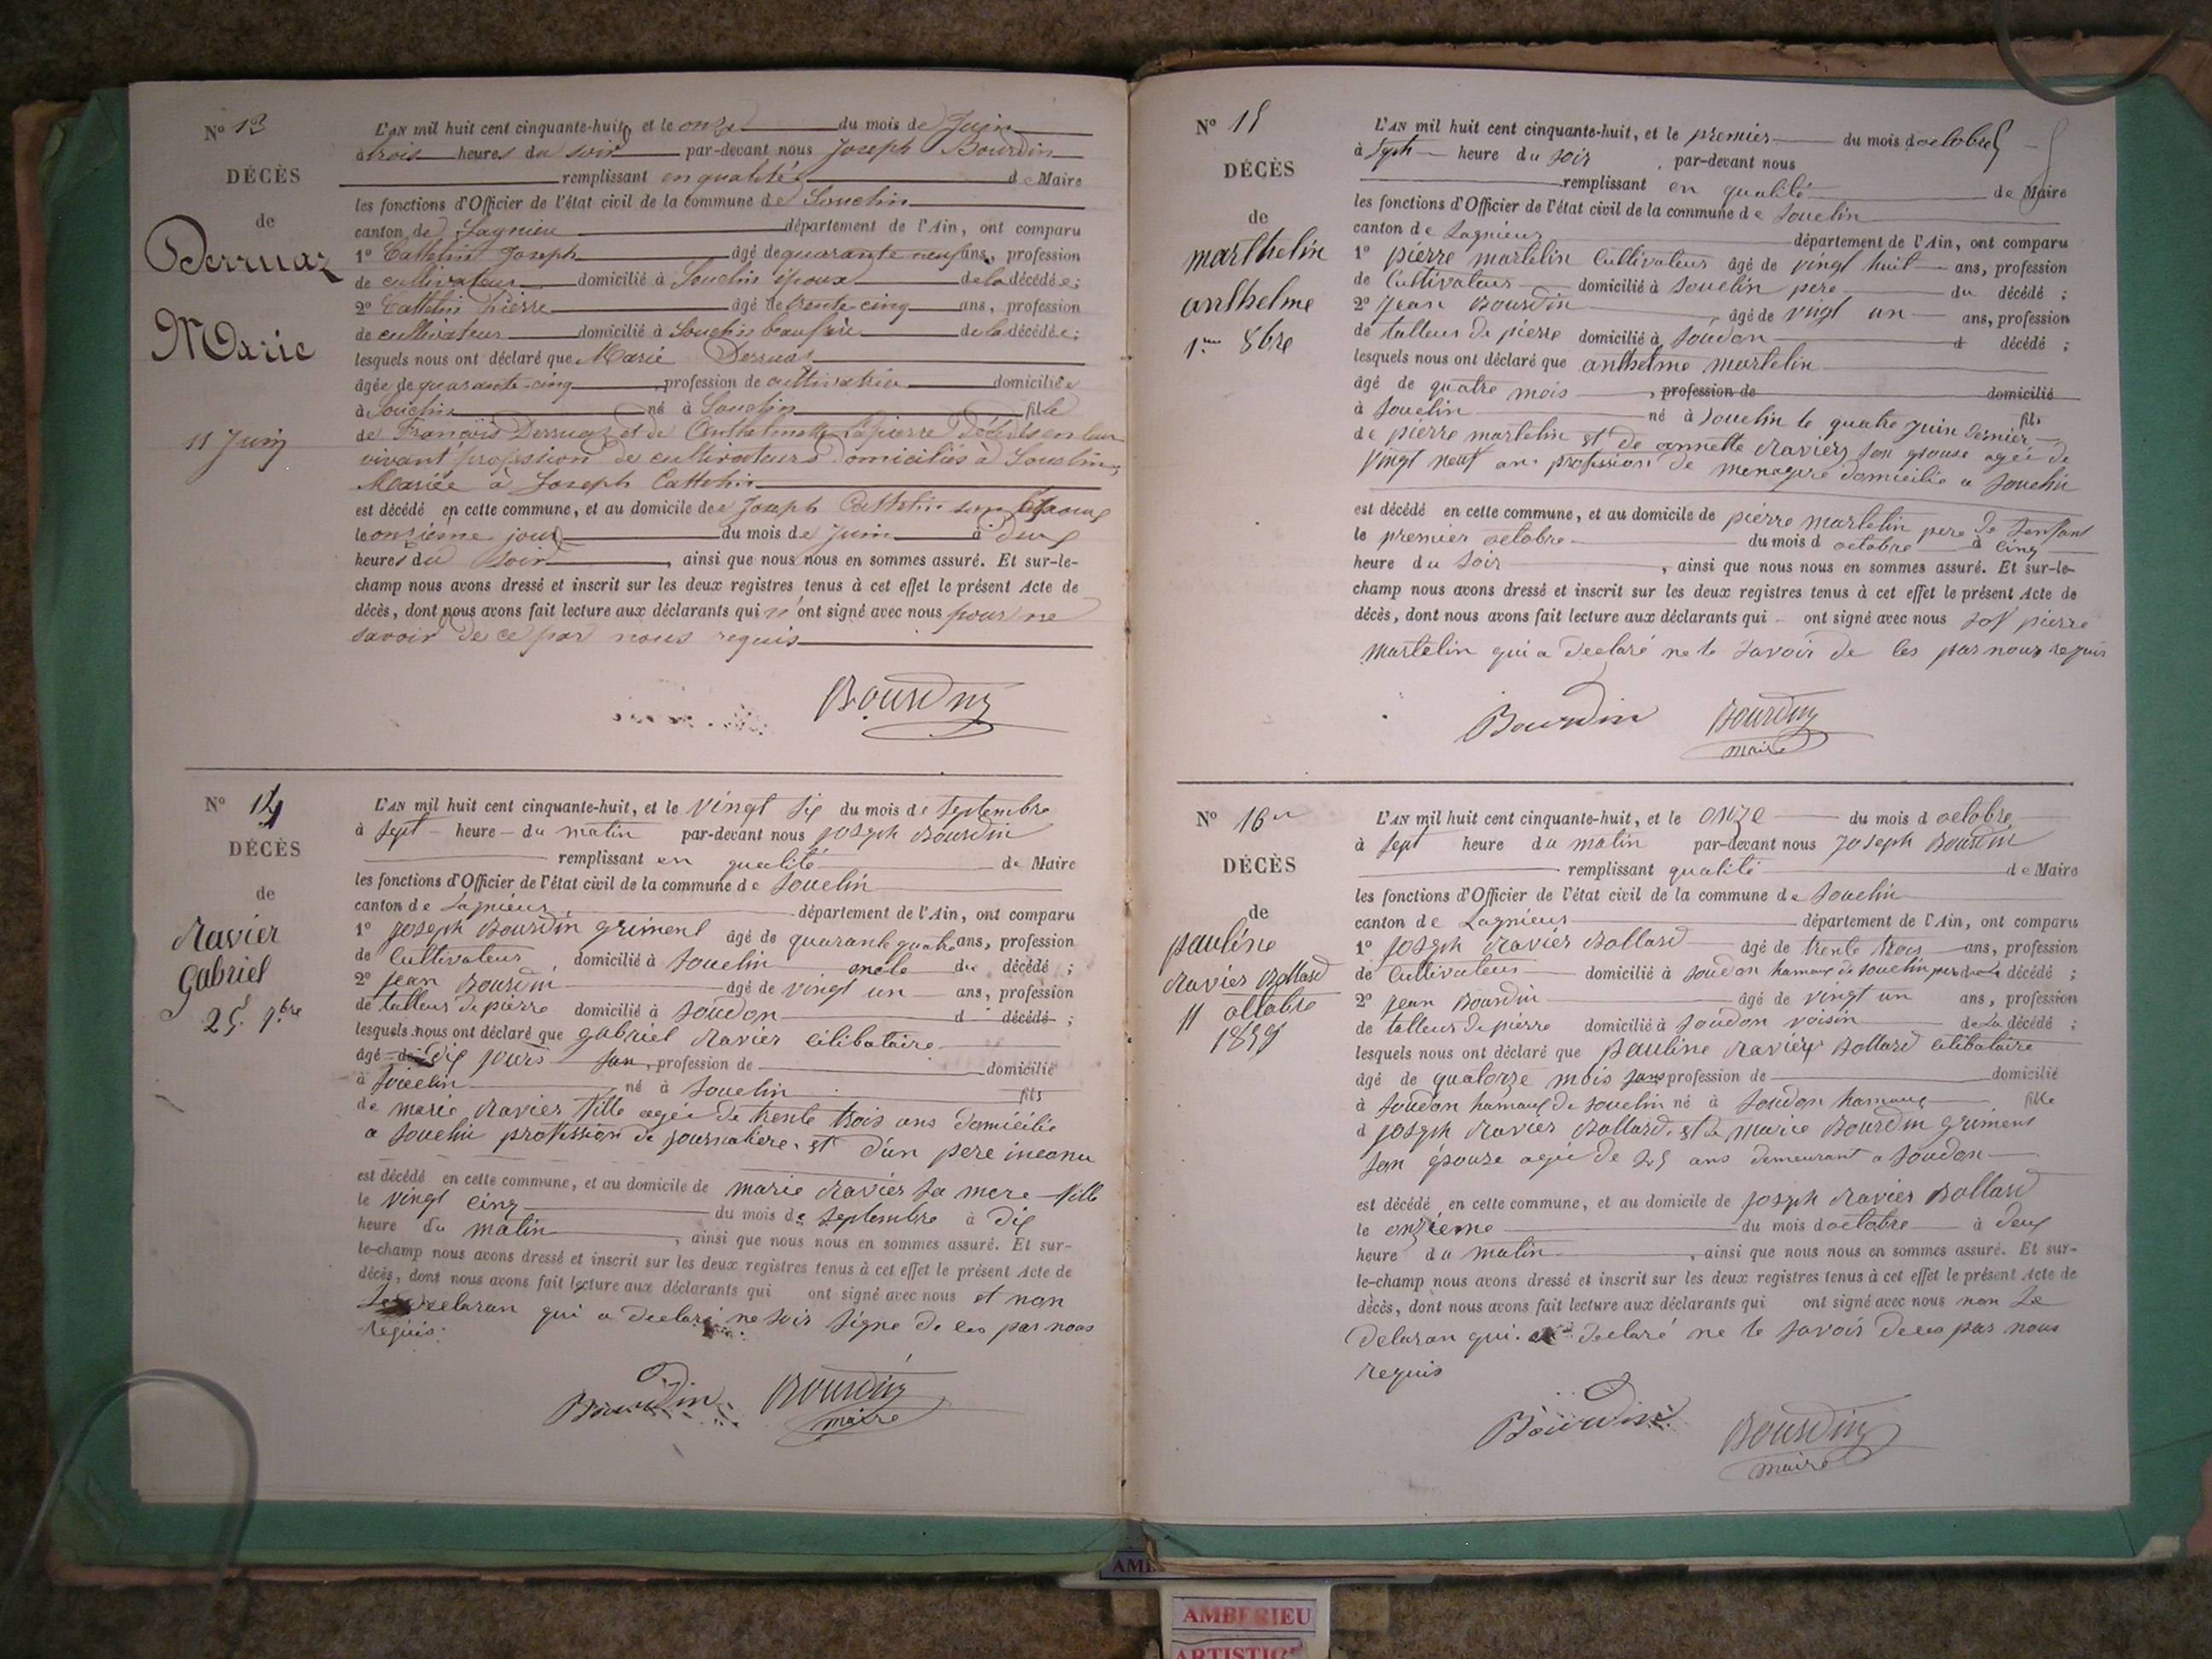 Nº 13
DÉCÈS
de
Derruaz
Marie
11 Juin
L'AN mil huit cent cinquante-huit, et le onze du mois de Juin
à trois heures du soir par-devant nous Joseph Bourdin
remplissant en qualité de Maire
les fonctions d'Officier de l'état civil de la commune de Souclin
canton de Lagnieu département de l'Ain, ont comparu
1º Cattelin Joseph âgé de quarante neuf ans, profession
de cultivateur domicilié à Souclin époux de la décédée;
2º Cattelin Pierre âgé de trente cinq ans, profession
de cultivateur domicilié à Souclin beaufrère de la décédée;
lesquels nous ont déclaré que Marie Derruaz
âgée de quarante-cinq, profession de cultivatrice domiciliée
à Souclin né à Souclin fille
de François Derruaz et de Anthelmette Lapierre décédés en leur
vivant profession de cultivateurs domiciliés à Souclin,
Mariée à Joseph Cattelin
est décédé en cette commune, et au domicile de Joseph Cattelin son époux
le onzième jour du mois de Juin à deux
heures du soir, ainsi que nous nous en sommes assuré. Et sur-le-
champ nous avons dressé et inscrit sur les deux registres tenus à cet effet le présent Acte de
décès, dont nous avons fait lecture aux déclarants qui n'ont signé avec nous pour ne
savoir de ce par nous requis
Bourdin
Nº 14
DÉCÈS
de
Ravier
Gabriel
25 7bre
L'AN mil huit cent cinquante-huit, et le vingt six du mois de septembre
à sept heure du matin par-devant nous joseph Bourdin
remplissant en qualité de Maire
les fonctions d'Officier de l'état civil de la commune de souclin
canton de Lagnieux département de l'Ain, ont comparu
1º joseph Bourdin griment âgé de quarante quatre ans, profession
de Cultivateur domicilié à souclin oncle du décédé;
2º jean Bourdin âgé de vingt un ans, profession
de talleur de pierre domicilié à soudon d décédé;
lesquels nous ont déclaré que gabriel Ravier célibataire
âgé de dix jours san, profession de domicilié
à souclin né à souclin fils
de marie Ravier fille agée de trente trois ans domicilie
a souclin profession de journaliere, et d'un pere inconu
est décédé en cette commune, et au domicile de marie Ravier sa mere fille
le vingt cinq du mois de septembre à dix
heure du matin, ainsi que nous nous en sommes assuré. Et sur-
le-champ nous avons dressé et inscrit sur les deux registres tenus à cet effet le présent Acte de
décès, dont nous avons fait lecture aux déclarants qui ont signé avec nous et non
declaran qui a declaré ne signe de ces par nous
requis
Bourdin Bourdin
maire
Nº 15
DÉCÈS
de
marthelin
anthelme
1er 8bre
L'AN mil huit cent cinquante-huit, et le premier du mois d octobre
à sept heure du soir, par-devant nous
remplissant en qualité de Maire
les fonctions d'Officier de l'état civil de la commune de souclin
canton de Lagnieux département de l'Ain, ont comparu
1º pierre martelin Cultivateur âgé de vingt huit ans, profession
de Cultivateur domicilié à souclin pere du décédé;
2º jean Bourdin, âgé de vingt un ans, profession
de talleur de pierre domicilié à soudon d décédé;
lesquels nous ont déclaré que anthelme martelin
âgé de quatre mois, profession de domicilié
à souclin né à souclin le quatre juin dernier fils
de pierre martelin et de annette Ravier son epouse agée de
vingt neuf ans profession de menagere domicilie a souclin
est décédé en cette commune, et au domicile de pierre martelin pere de l'enfant
le premier octobre du mois d octobre à cinq
heure du soir, ainsi que nous nous en sommes assuré. Et sur-le-
champ nous avons dressé et inscrit sur les deux registres tenus à cet effet le présent Acte de
décès, dont nous avons fait lecture aux déclarants qui ont signé avec nous sof pierre
martelin qui a declaré ne le savoir de ces par nous requis
Bourdin Bourdin
maire
Nº 16
DÉCÈS
de
pauline
Ravier Bollard
11 octobre
1858
L'AN mil huit cent cinquante-huit, et le onze du mois d octobre
à sept heure du matin par-devant nous joseph Bourdin
remplissant qualité de Maire
les fonctions d'Officier de l'état civil de la commune de souclin
canton de Lagnieux département de l'Ain, ont comparu
1º joseph Ravier Bollard âgé de trente trois ans, profession
de Cultivateur domicilié à soudon hamaux de souclin pere de la décédé;
2º jean Bourdin âgé de vingt un ans, profession
de talleur de pierre domicilié à soudon voisin de La décédé;
lesquels nous ont déclaré que pauline Ravier Bollard célibataire
âgé de quatorze mois sans profession de domicilié
à soudon hamaux de souclin né à soudon hamaux fille
d joseph Ravier Bollard et de marie Bourdin griment
son épouse agée de ans demeurant a soudon
est décédé en cette commune, et au domicile de joseph Ravier Bollard
le onzieme du mois d octobre à deux
heure du matin, ainsi que nous nous en sommes assuré. Et sur-
le-champ nous avons dressé et inscrit sur les deux registres tenus à cet effet le présent Acte de
décès, dont nous avons fait lecture aux déclarants qui ont signé avec nous non Le
delaran qui a declaré ne le savoir de ces par nous
requis
Bourdin Bourdin
maire
AMBERIEU